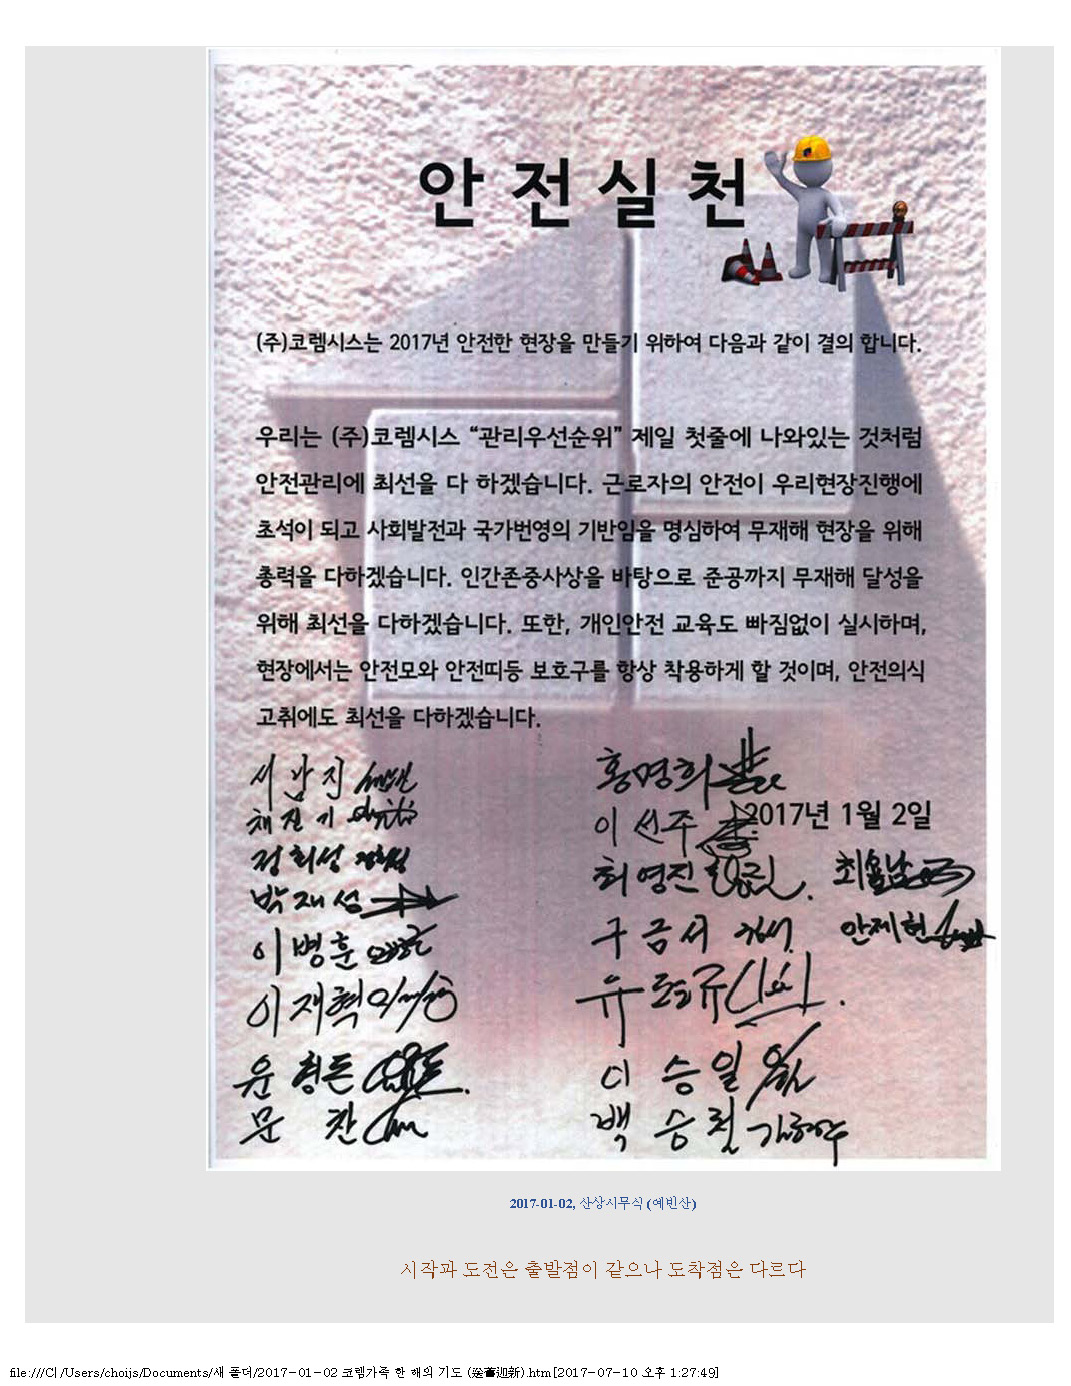 안전실천
(주)코렘시스는 2017년 안전한 현장을 만들기 위하여 다음과 같이 결의 합니다.
우리는 (주)코렘시스 “관리우선순위” 제일 첫줄에 나와있는 것처럼
안전관리에 최선을 다 하겠습니다. 근로자의 안전이 우리현장진행에
초석이 되고 사회발전과 국가번영의 기반임을 명심하여 무재해 현장을 위해
총력을 다하겠습니다. 인간존중사상을 바탕으로 준공까지 무재해 달성을
위해 최선을 다하겠습니다. 또한, 개인안전 교육도 빠짐없이 실시하며,
현장에서는 안전모와 안전띠등 보호구를 항상 착용하게 할 것이며, 안전의식
고취에도 최선을 다하겠습니다.
2017년 1월 2일
서남진
채진기
정희성
박재성
이병훈
이재혁
윤형돈
문 찬
홍명희
이선주
최영진
구금서
유
이승일
백승철
안제헌
2017-01-02, 산상시무식 (예빈산)
시작과 도전은 출발점이 같으나 도착점은 다르다
file:///C|/Users/choijs/Documents/새 폴더/2017-01-02 코렘가족 한 해의 기도 (送舊迎新).htm[2017-07-10 오후 1:27:49]